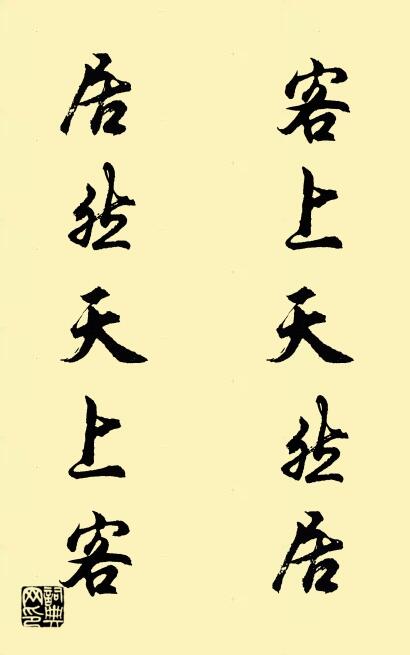 客上天然居
居然天上客
詞典网印